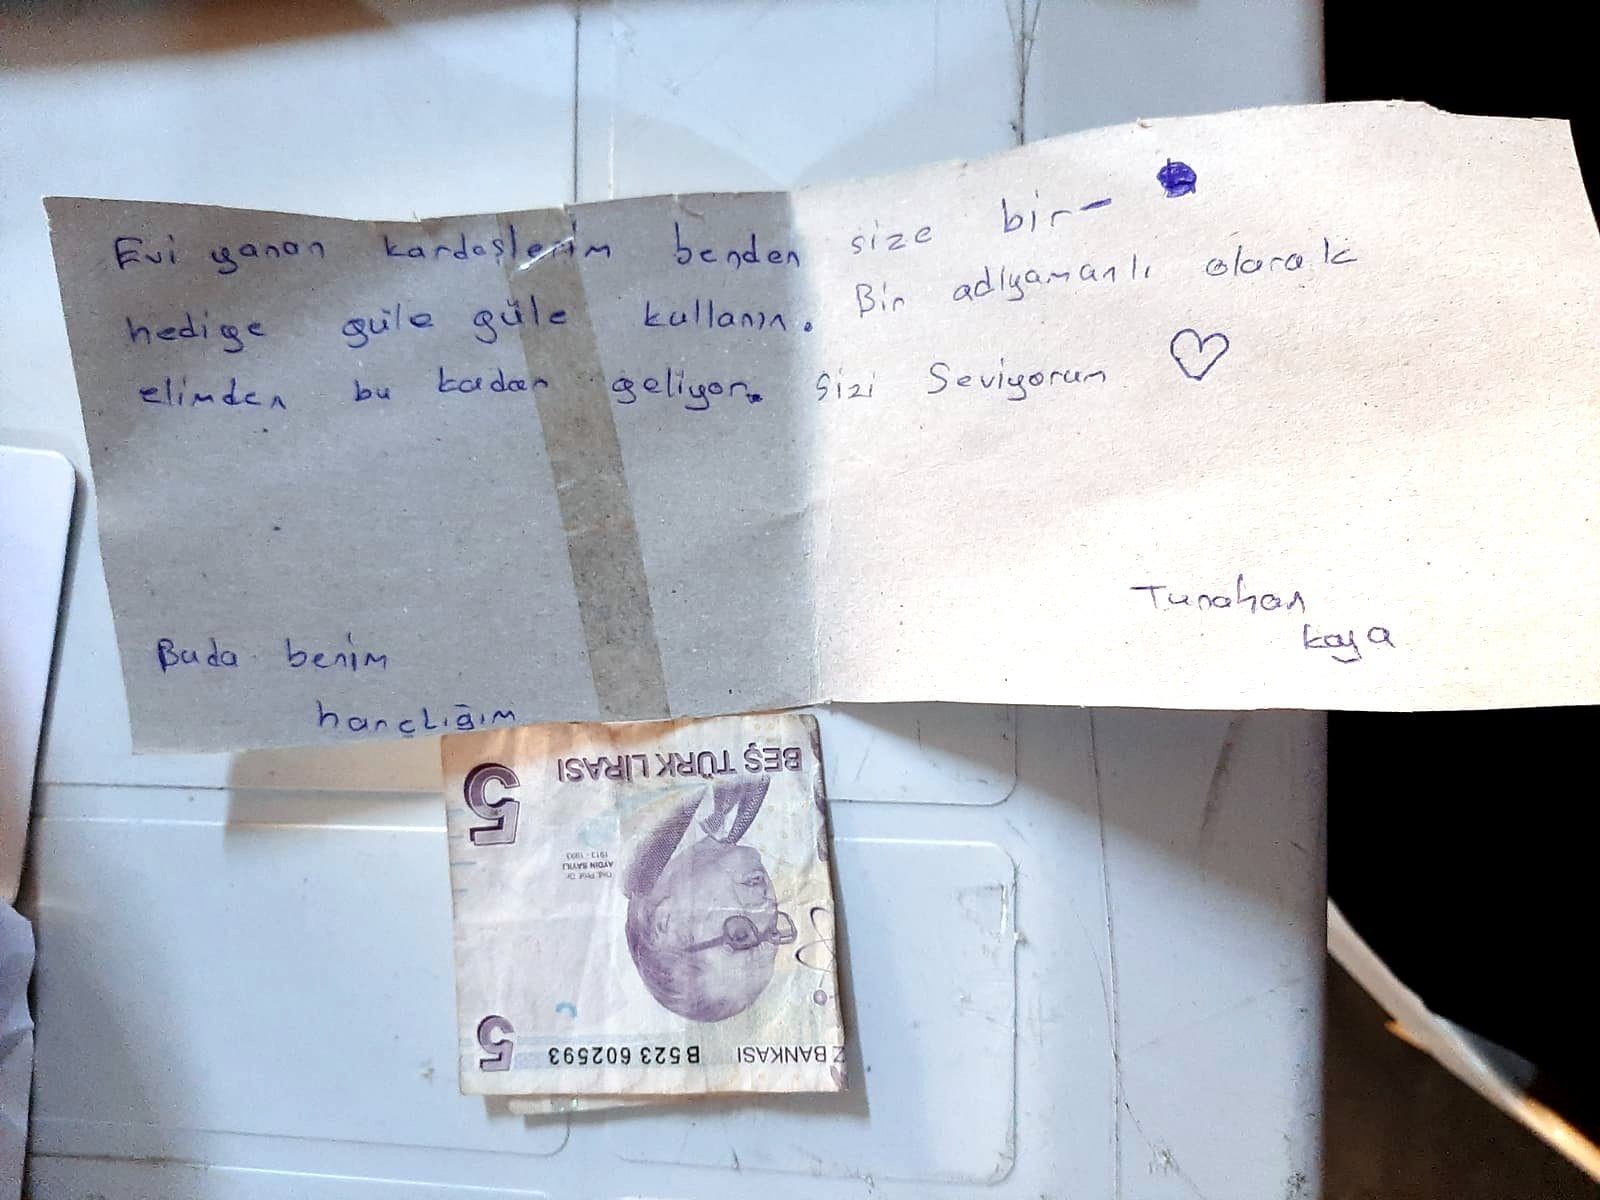 Evi yanan kardeşlerim benden size bir-
hediye güle güle kullanın. Bir adıyamanlı olarak
elimden bu kadar geliyor. Sizi Seviyorum ♡
Tunahan
kaya
Buda benim
harçlığım
BEŞ TÜRK LİRASI
5
Ord. Prof. Dr.
AYDIN SAYILI
1913 - 1993
Z BANKASI B523 602593
5